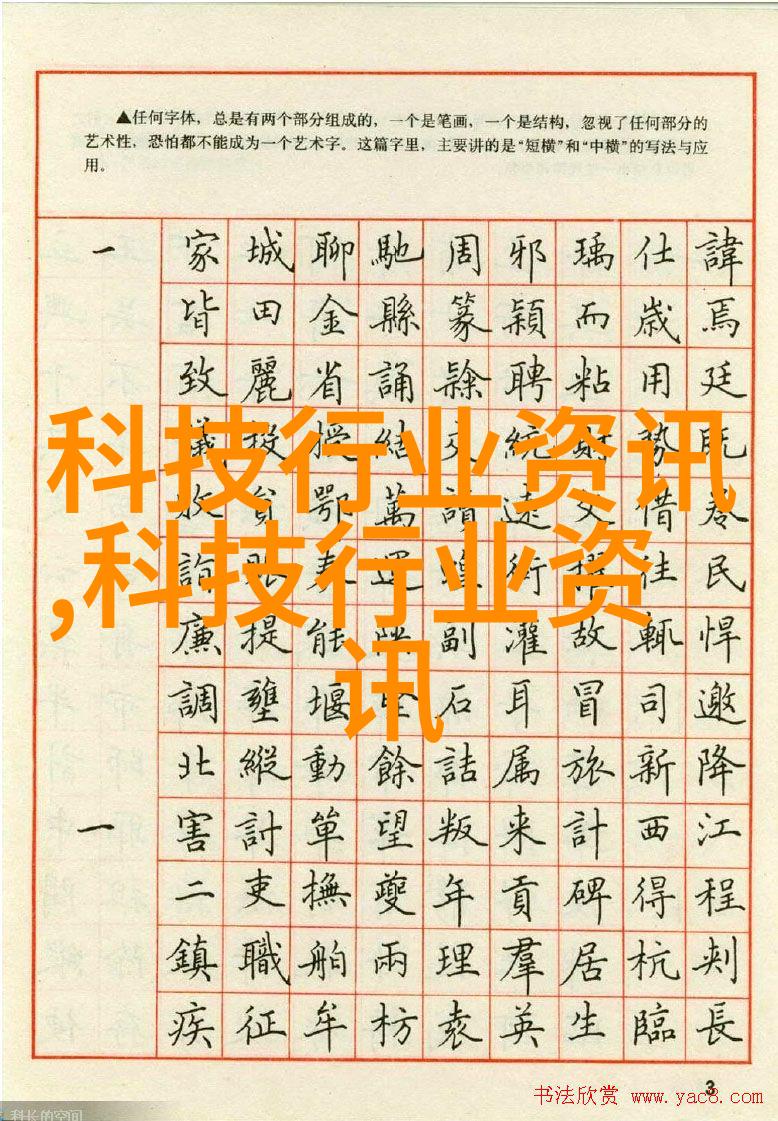 ▲任何字体，总是有两个部分组成的，一个是笔画，一个是结构，忽视了任何部分的
艺术性，恐怕都不能成为一个艺术字。这篇字里，主要讲的是“短横”和“中横”的写法与应
用。
一 家 城 聊 馳 周 邪 瑀 仕 諱
皆 田 金 縣 篆 穎 而 歲 焉
致 麗 省 誦 隸 聘 粘 用 廷
儀 投 授 結 交 統 財 勢 既
科技行业资讯
收 貧 鄂 萬 請 遠 文 借
,科技行业资
詢 賑 表 還 蝗 術 擇 往 民
廉 提 能 陝 副 濯 故 輒 悍
讯
調 壅 堰 堅 石 耳 冒 司 邀
北 縱 動 餘 詰 属 旅 新 降
一 害 討 單 望 叛 来 計 西 江
二 吏 撫 夔 年 貢 碑 得 程
鎮 職 舶 兩 理 羣 居 杭
疾 征 牟 枋 袁 英 生 臨 長
3
书法欣赏 www.yac8.com
科长的空间